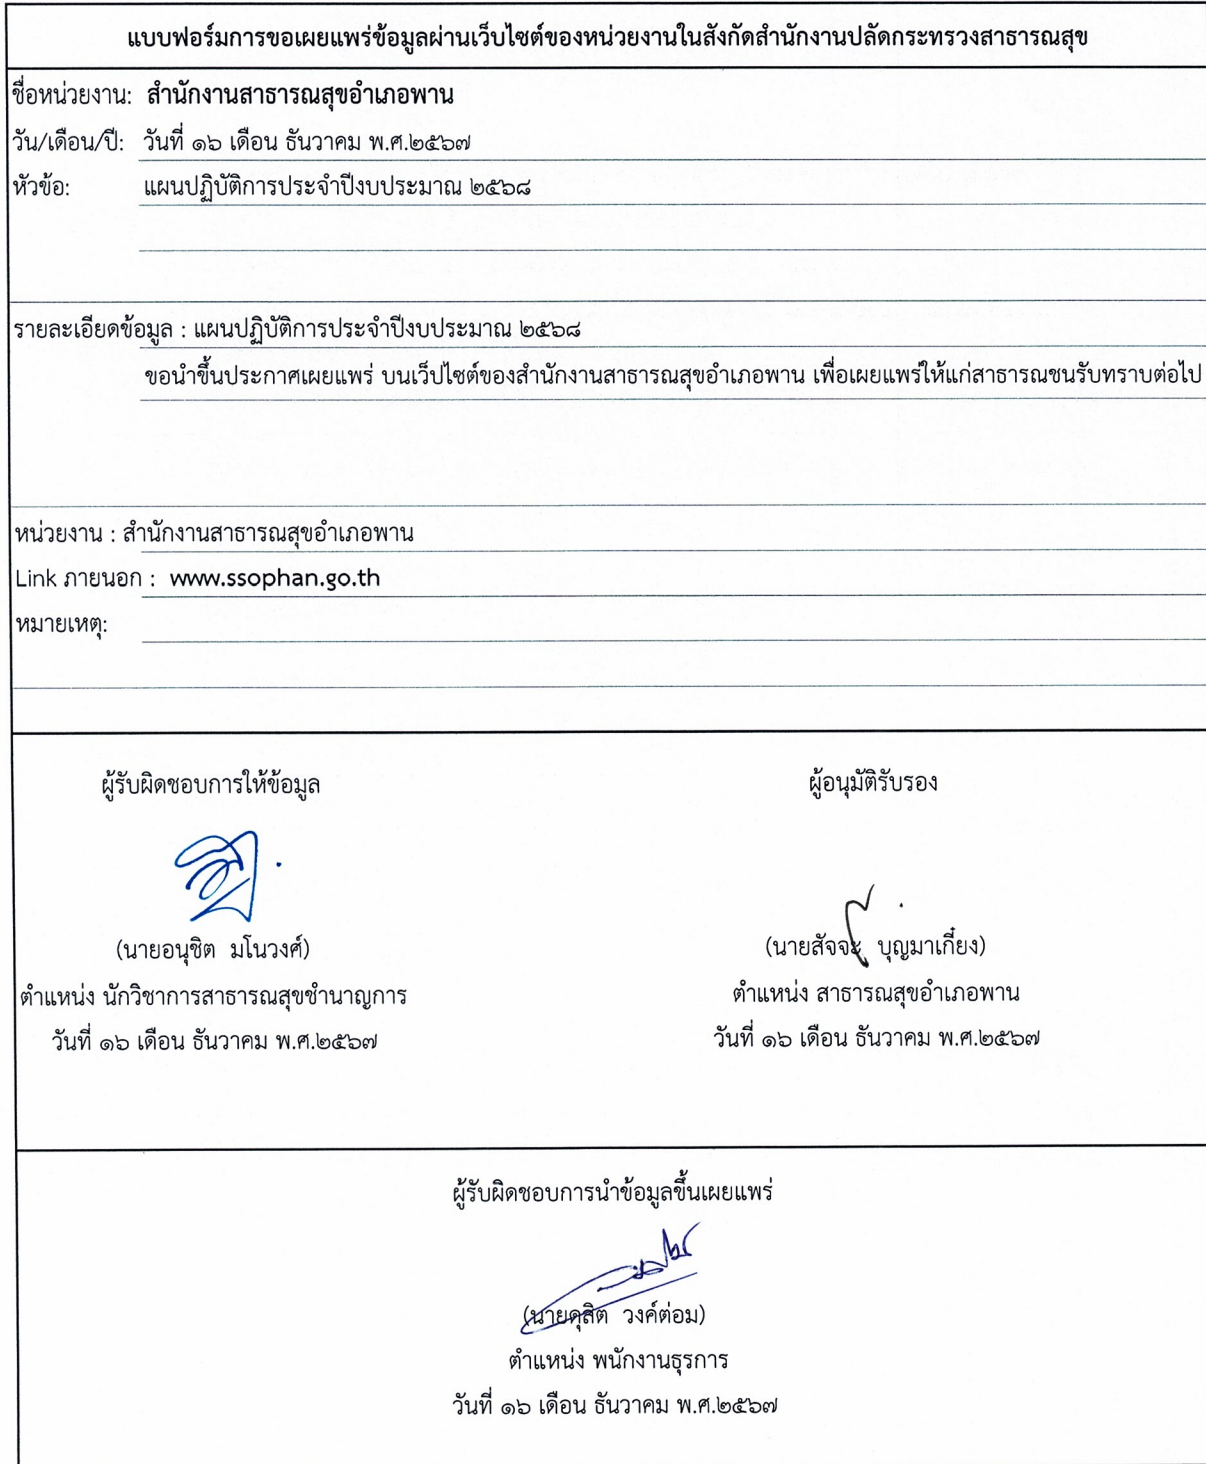 แบบฟอร์มการขอเผยแพร่ข้อมูลผ่านเว็บไซต์ของหน่วยงานในสังกัดสำนักงานปลัดกระทรวงสาธารณสุข
ชื่อหน่วยงาน: สำนักงานสาธารณสุขอำเภอพาน
วัน/เดือน/ปี: วันที่ ๑๖ เดือน ธันวาคม พ.ศ.๒๕๖๗
หัวข้อ: แผนปฏิบัติการประจำปีงบประมาณ ๒๕๖๘
รายละเอียดข้อมูล : แผนปฏิบัติการประจำปีงบประมาณ ๒๕๖๘
ขอนำขึ้นประกาศเผยแพร่ บนเว็ปไซต์ของสำนักงานสาธารณสุขอำเภอพาน เพื่อเผยแพร่ให้แก่สาธารณชนรับทราบต่อไป
หน่วยงาน : สำนักงานสาธารณสุขอำเภอพาน
Link ภายนอก : www.ssophan.go.th
หมายเหตุ:
ผู้รับผิดชอบการให้ข้อมูล
(นายอนุชิต มโนวงศ์)
ตำแหน่ง นักวิชาการสาธารณสุขชำนาญการ
วันที่ ๑๖ เดือน ธันวาคม พ.ศ.๒๕๖๗
ผู้อนุมัติรับรอง
(นายสัจจะ บุญมาเกี๋ยง)
ตำแหน่ง สาธารณสุขอำเภอพาน
วันที่ ๑๖ เดือน ธันวาคม พ.ศ.๒๕๖๗
ผู้รับผิดชอบการนำข้อมูลขึ้นเผยแพร่
(นายดุสิต วงค์ต่อม)
ตำแหน่ง พนักงานธุรการ
วันที่ ๑๖ เดือน ธันวาคม พ.ศ.๒๕๖๗